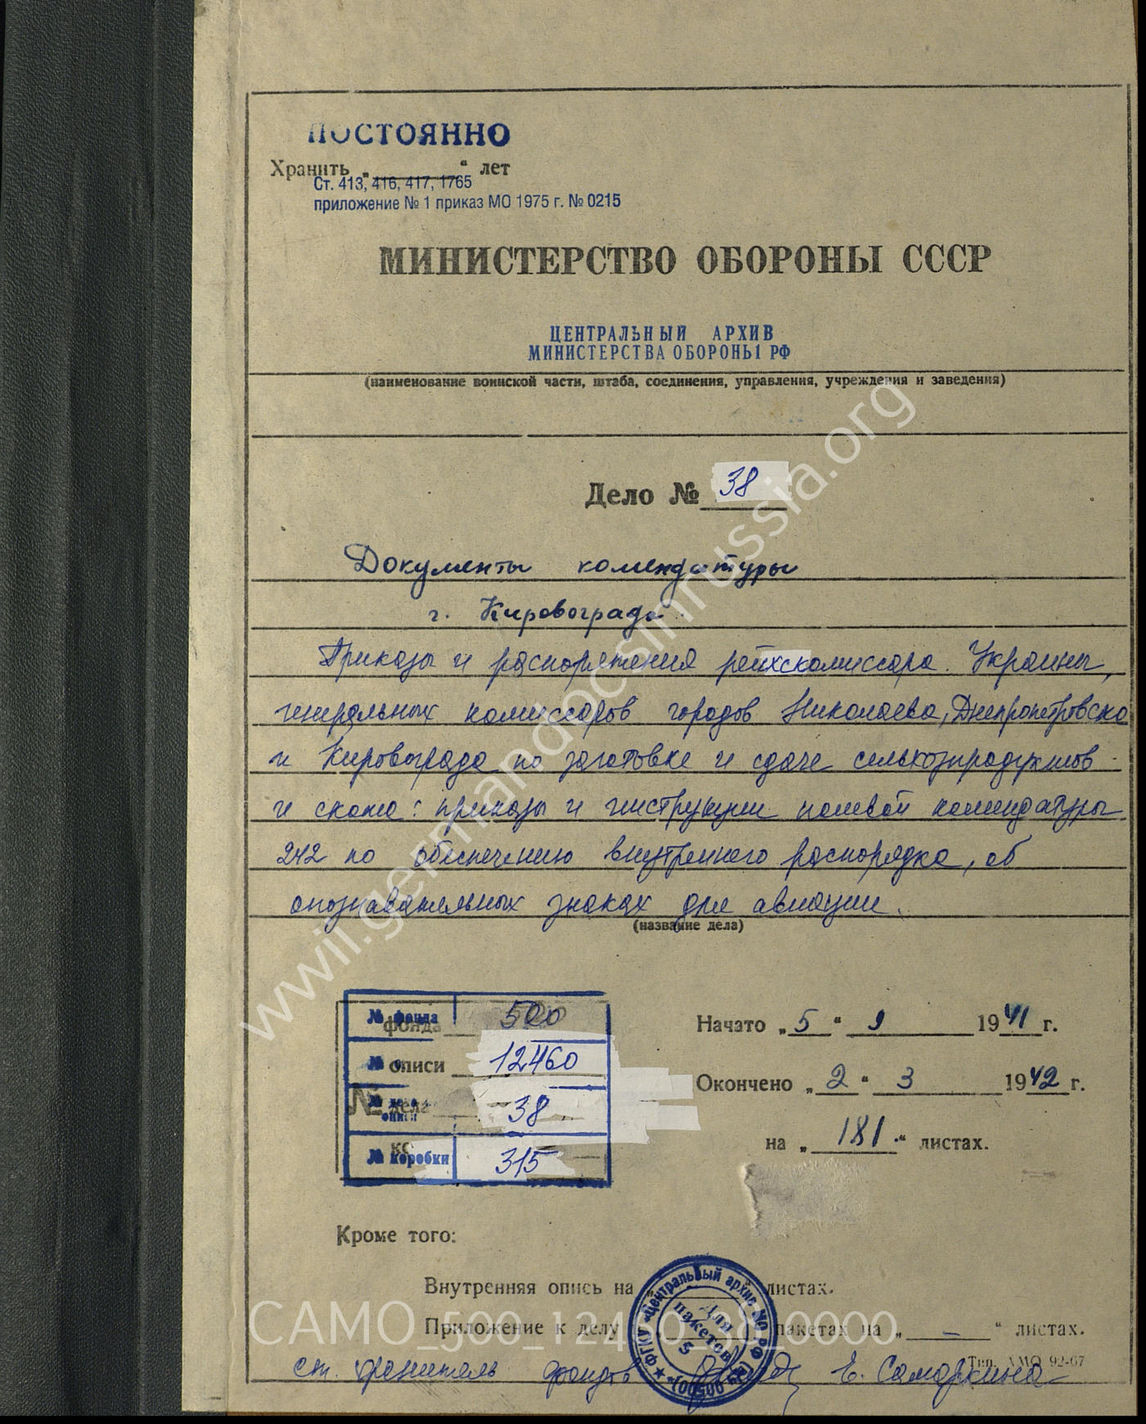 ПОСТОЯННО
Хранить „ “ лет
Ст. 413, 416, 417, 1765
приложение № 1 приказ МО 1975 г. № 0215
МИНИСТЕРСТВО ОБОРОНЫ СССР
ЦЕНТРАЛЬНЫЙ АРХИВ
МИНИСТЕРСТВА ОБОРОНЫ РФ
(наименование воинской части, штаба, соединения, управления, учреждения и заведения)
Дело № 38
Документы комендатуры
г. Кировограда.
Приказы и распоряжения рейхскомиссара Украины,
генеральных комиссаров городов Николаева, Днепропетровска
и Кировограда по заготовке и сдаче сельхозпродуктов
и скота: приказы и инструкции полевой комендатуры
242 по обеспечению внутреннего распорядка, об
опознавательных знаках для авиации.
(название дела)
№ фонда 500
№ описи 12460
№ дела 38
№ коробки 315
Начато „5“ 9 1941 г.
Окончено „2“ 3 1942 г.
на „181“ листах.
Кроме того:
Внутренняя опись на листах.
Приложение к делу пакетах на „ – “ листах.
Тип. ХМО 92-67
ст. хранитель фондов Е. Самаркина
ФГКУ «Центральный архив МО РФ
Для пакетов 5
www.germandocsinrussia.org
CAMO_500_12460_38_0000